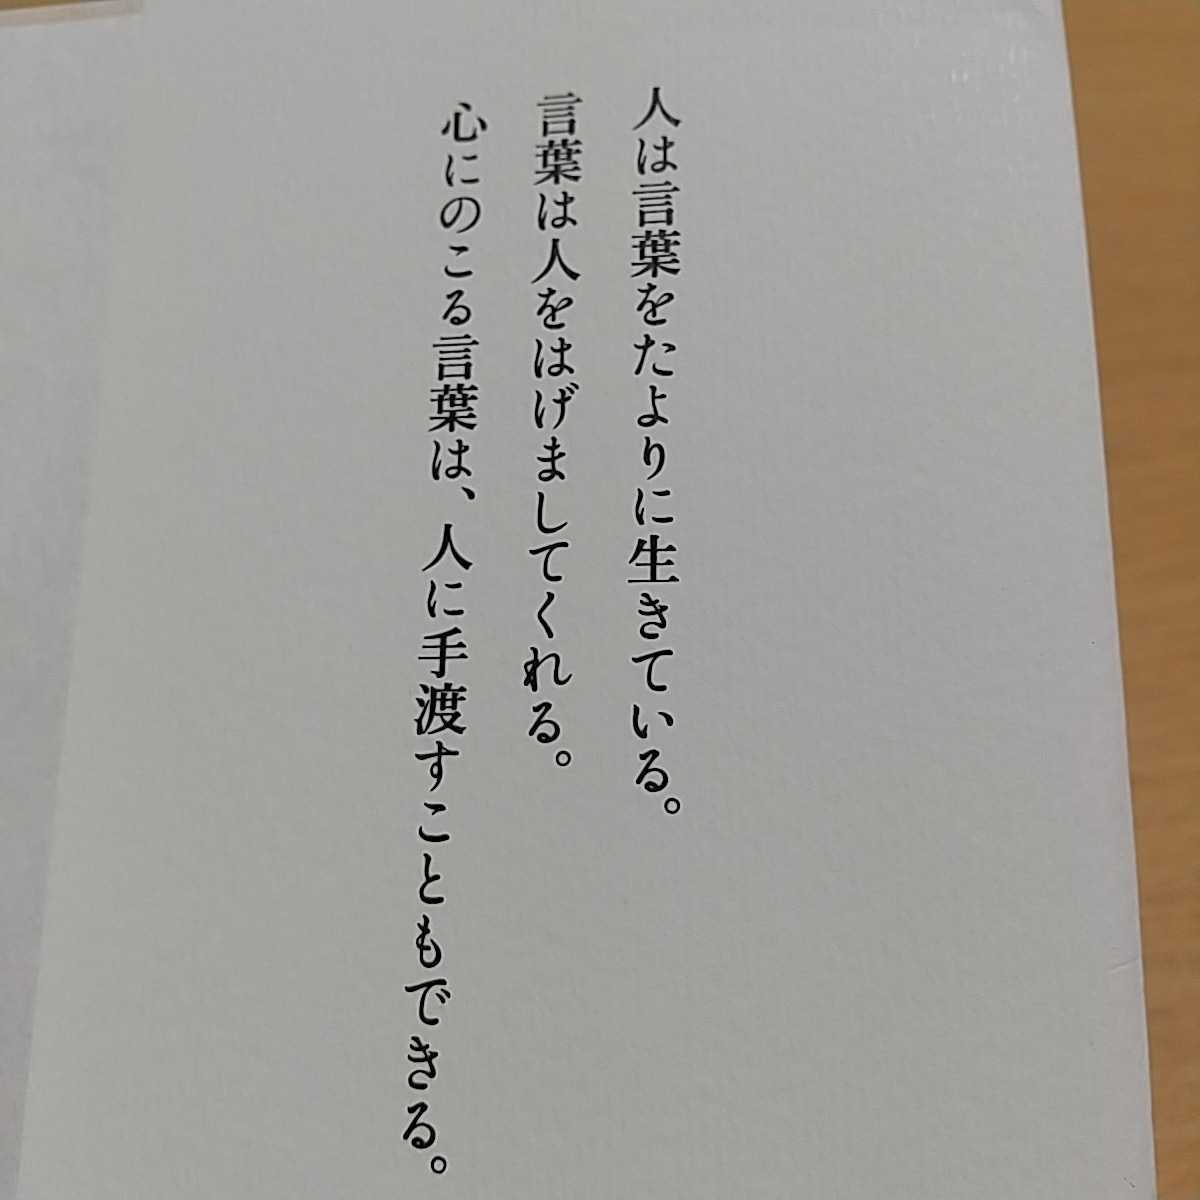 人は言葉をたよりに生きている。
言葉は人をはげましてくれる。
心にのこる言葉は、人に手渡すこともできる。